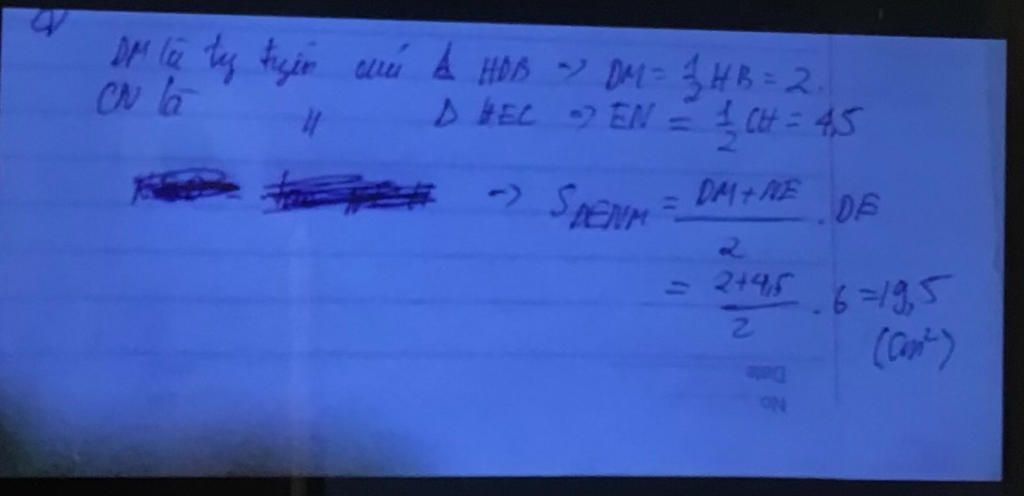 c)
DM là ttuyến của Δ HDB → DM = 1/2 HB = 2.
CN là " Δ HEC → EN = 1/2 CH = 4,5
→ S_DENM = (DM + NE)/2 . DE
= (2+4,5)/2 . 6 = 19,5
(Cm²)
Date
No